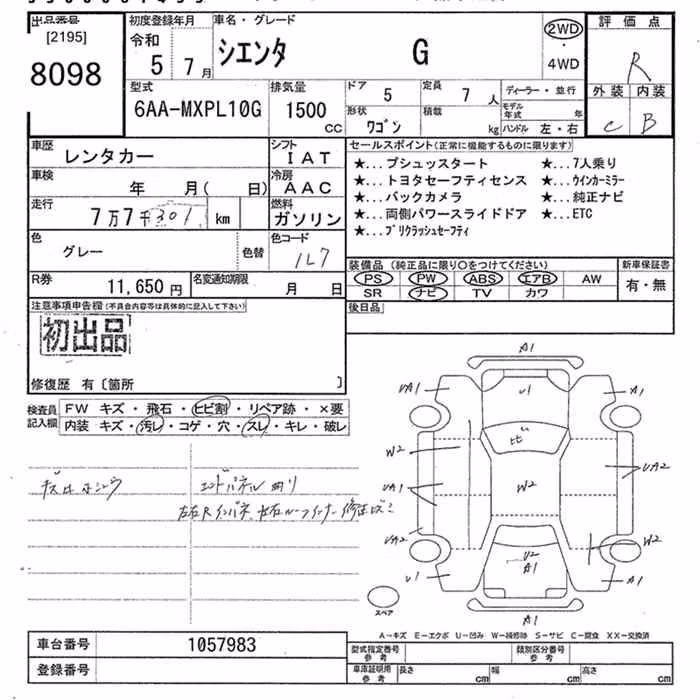 出品番号
[2195]
8098
初度登録年月
令和
5 7月
車名・グレード
シエンタ G
2WD
・
4WD
評価点
R
外装 内装
C B
型式
6AA-MXPL10G
排気量
1500
CC
ドア
5
定員
7 人
形状
ワゴン
積載
kg
ディーラー・並行
モデル年式 年
ハンドル 左・右
車歴
レンタカー
シフト
IAT
車検
年 月( 日)
冷房
AAC
走行
7万7千301 km
燃料
ガソリン
色
グレー
色替
色コード
1L7
R券
11,650 円
名変通知期限
月 日
セールスポイント(正常に機能するものに限ります)
★...プシュッスタート ★...7人乗り
★...トヨタセーフティセンス ★...ウインカーミラー
★...バックカメラ ★...純正ナビ
★...両側パワースライドドア ★...ETC
★...プリクラッシュセーフティ
装備品(純正品に限り○をつけてください)
PS PW ABS エアB AW
SR ナビ TV カワ
新車保証書
有・無
後日品
注意事項申告欄(不具合内容等は具体的に記入して下さい)
初出品
修復歴 有〔箇所 〕
検査員記入欄
FW キズ・飛石・ヒビ割・リペア跡・×要
内装 キズ・汚レ・コゲ・穴・スレ・キレ・破レ
エンドパネル曲り
A1
UA1
U1
A1
W2
UA1
UA2
U1
W2
UA2
W2
U2
A1
A1
A1
スペア
A-キズ E-エクボ U-凹み W-補修跡 S-サビ C-腐食 XX-交換済
車台番号
1057983
登録番号
型式指定番号
参考
類別区分番号
参考
車庫証明用
参考
長さ cm
幅 cm
高さ cm